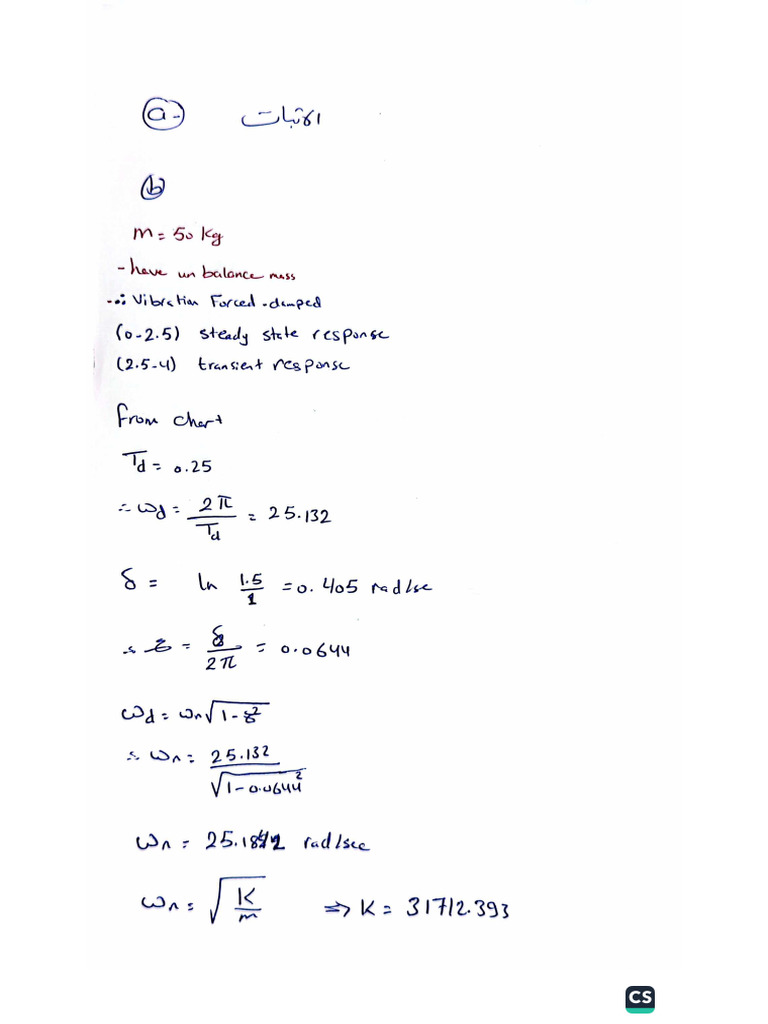 a- الاثبات
b
m = 50 kg
- have un balance mass
-∴ Vibration Forced-damped
(0-2.5) steady state response
(2.5-4) transient response
From chart
Td = 0.25
∴ ωd = 2π / Td = 25.132
δ = ln 1.5/1 = 0.405 rad/se
∴ ξ = δ / 2π = 0.0644
ωd = ωn √(1-ξ²)
∴ ωn = 25.132 / √(1-0.0644²)
ωn = 25.1842 rad/sec
ωn = √(K/m) ⇒ K = 31712.393
CS